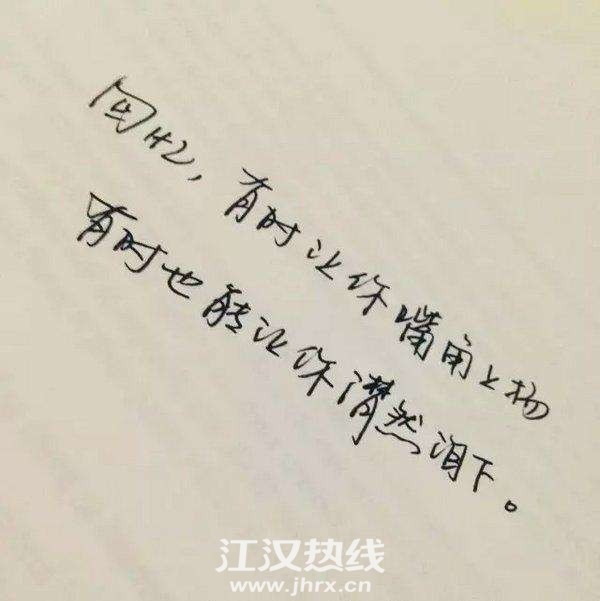 回忆，有时让你嘴角上扬
有时也能让你潸然泪下。
江汉热线
www.jhrx.cn